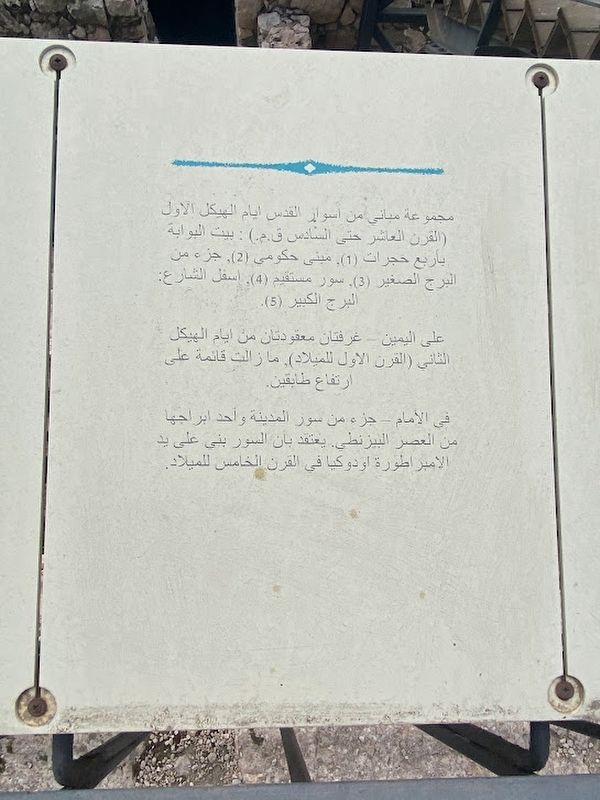 مجموعة مباني من أسوار القدس ايام الهيكل الاول
(القرن العاشر حتى السادس ق.م.) : بيت البوابة
بأربع حجرات (1), مبنى حكومي (2), جزء من
البرج الصغير (3), سور مستقيم (4), اسفل الشارع:
البرج الكبير (5).
على اليمين – غرفتان معقودتان من ايام الهيكل
الثاني (القرن الاول للميلاد), ما زالت قائمة على
ارتفاع طابقين.
في الأمام – جزء من سور المدينة وأحد ابراجها
من العصر البيزنطي. يعتقد بان السور بني على يد
الامبراطورة اودوكيا في القرن الخامس للميلاد.